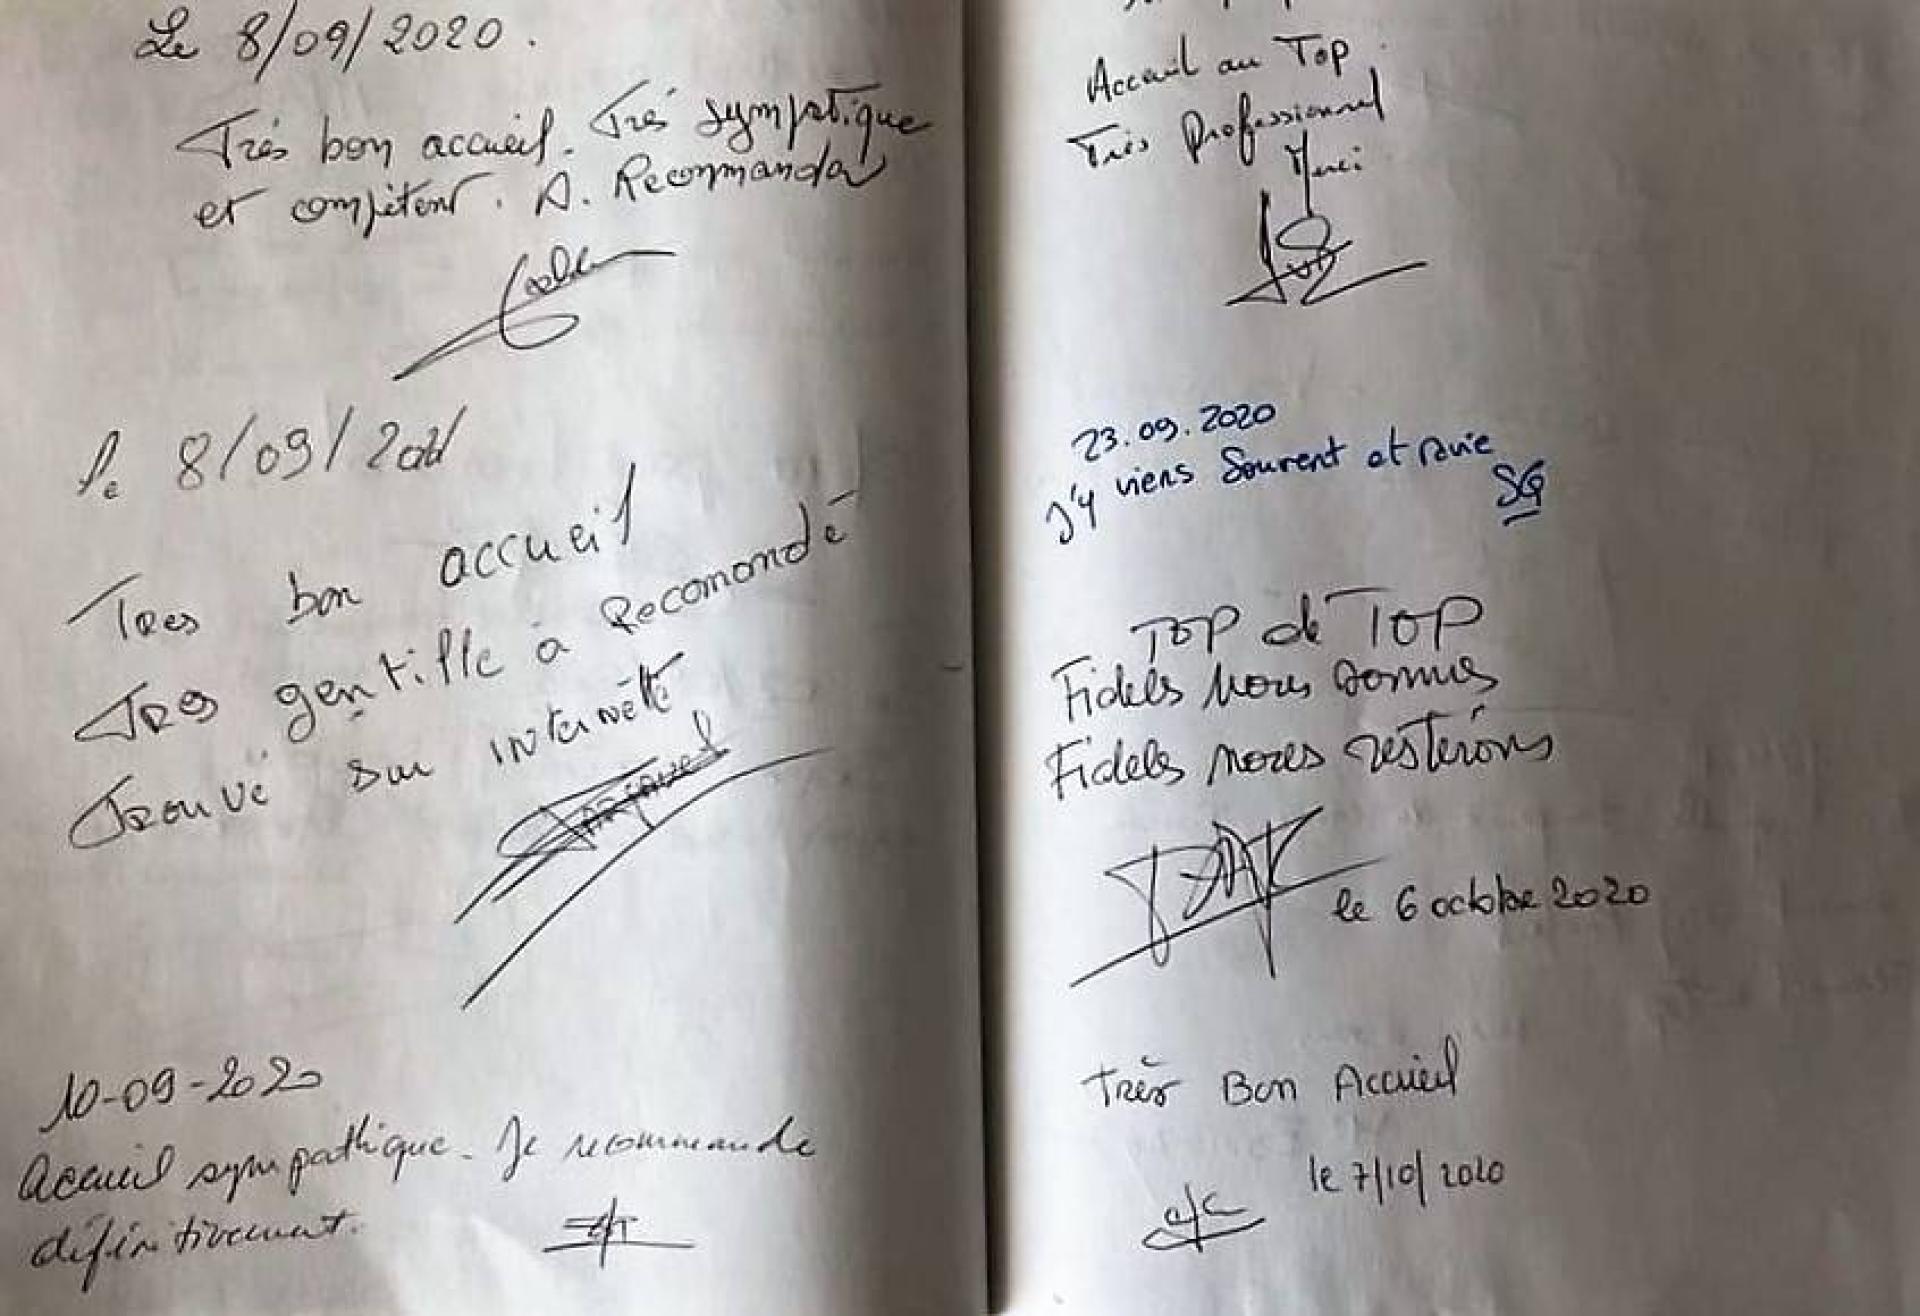 Le 8/09/2020.
Très bon accueil. Très sympatique
et compétent. A. Recommander
le 8/09/202
Tres bon accueil
Tres gentille à Recomondé
Trouvé sur internètte
10-09-2020
Accueil sympathique. Je recommande
définitivement.
Accueil au Top
Très Professionnel
Merci
23.09.2020
J'y viens Souvent et ravie
SG
TOP de TOP
Fidels nous sommes
Fidels nous resterons
le 6 octobre 2020
Très Bon Accueil
le 7/10/2020